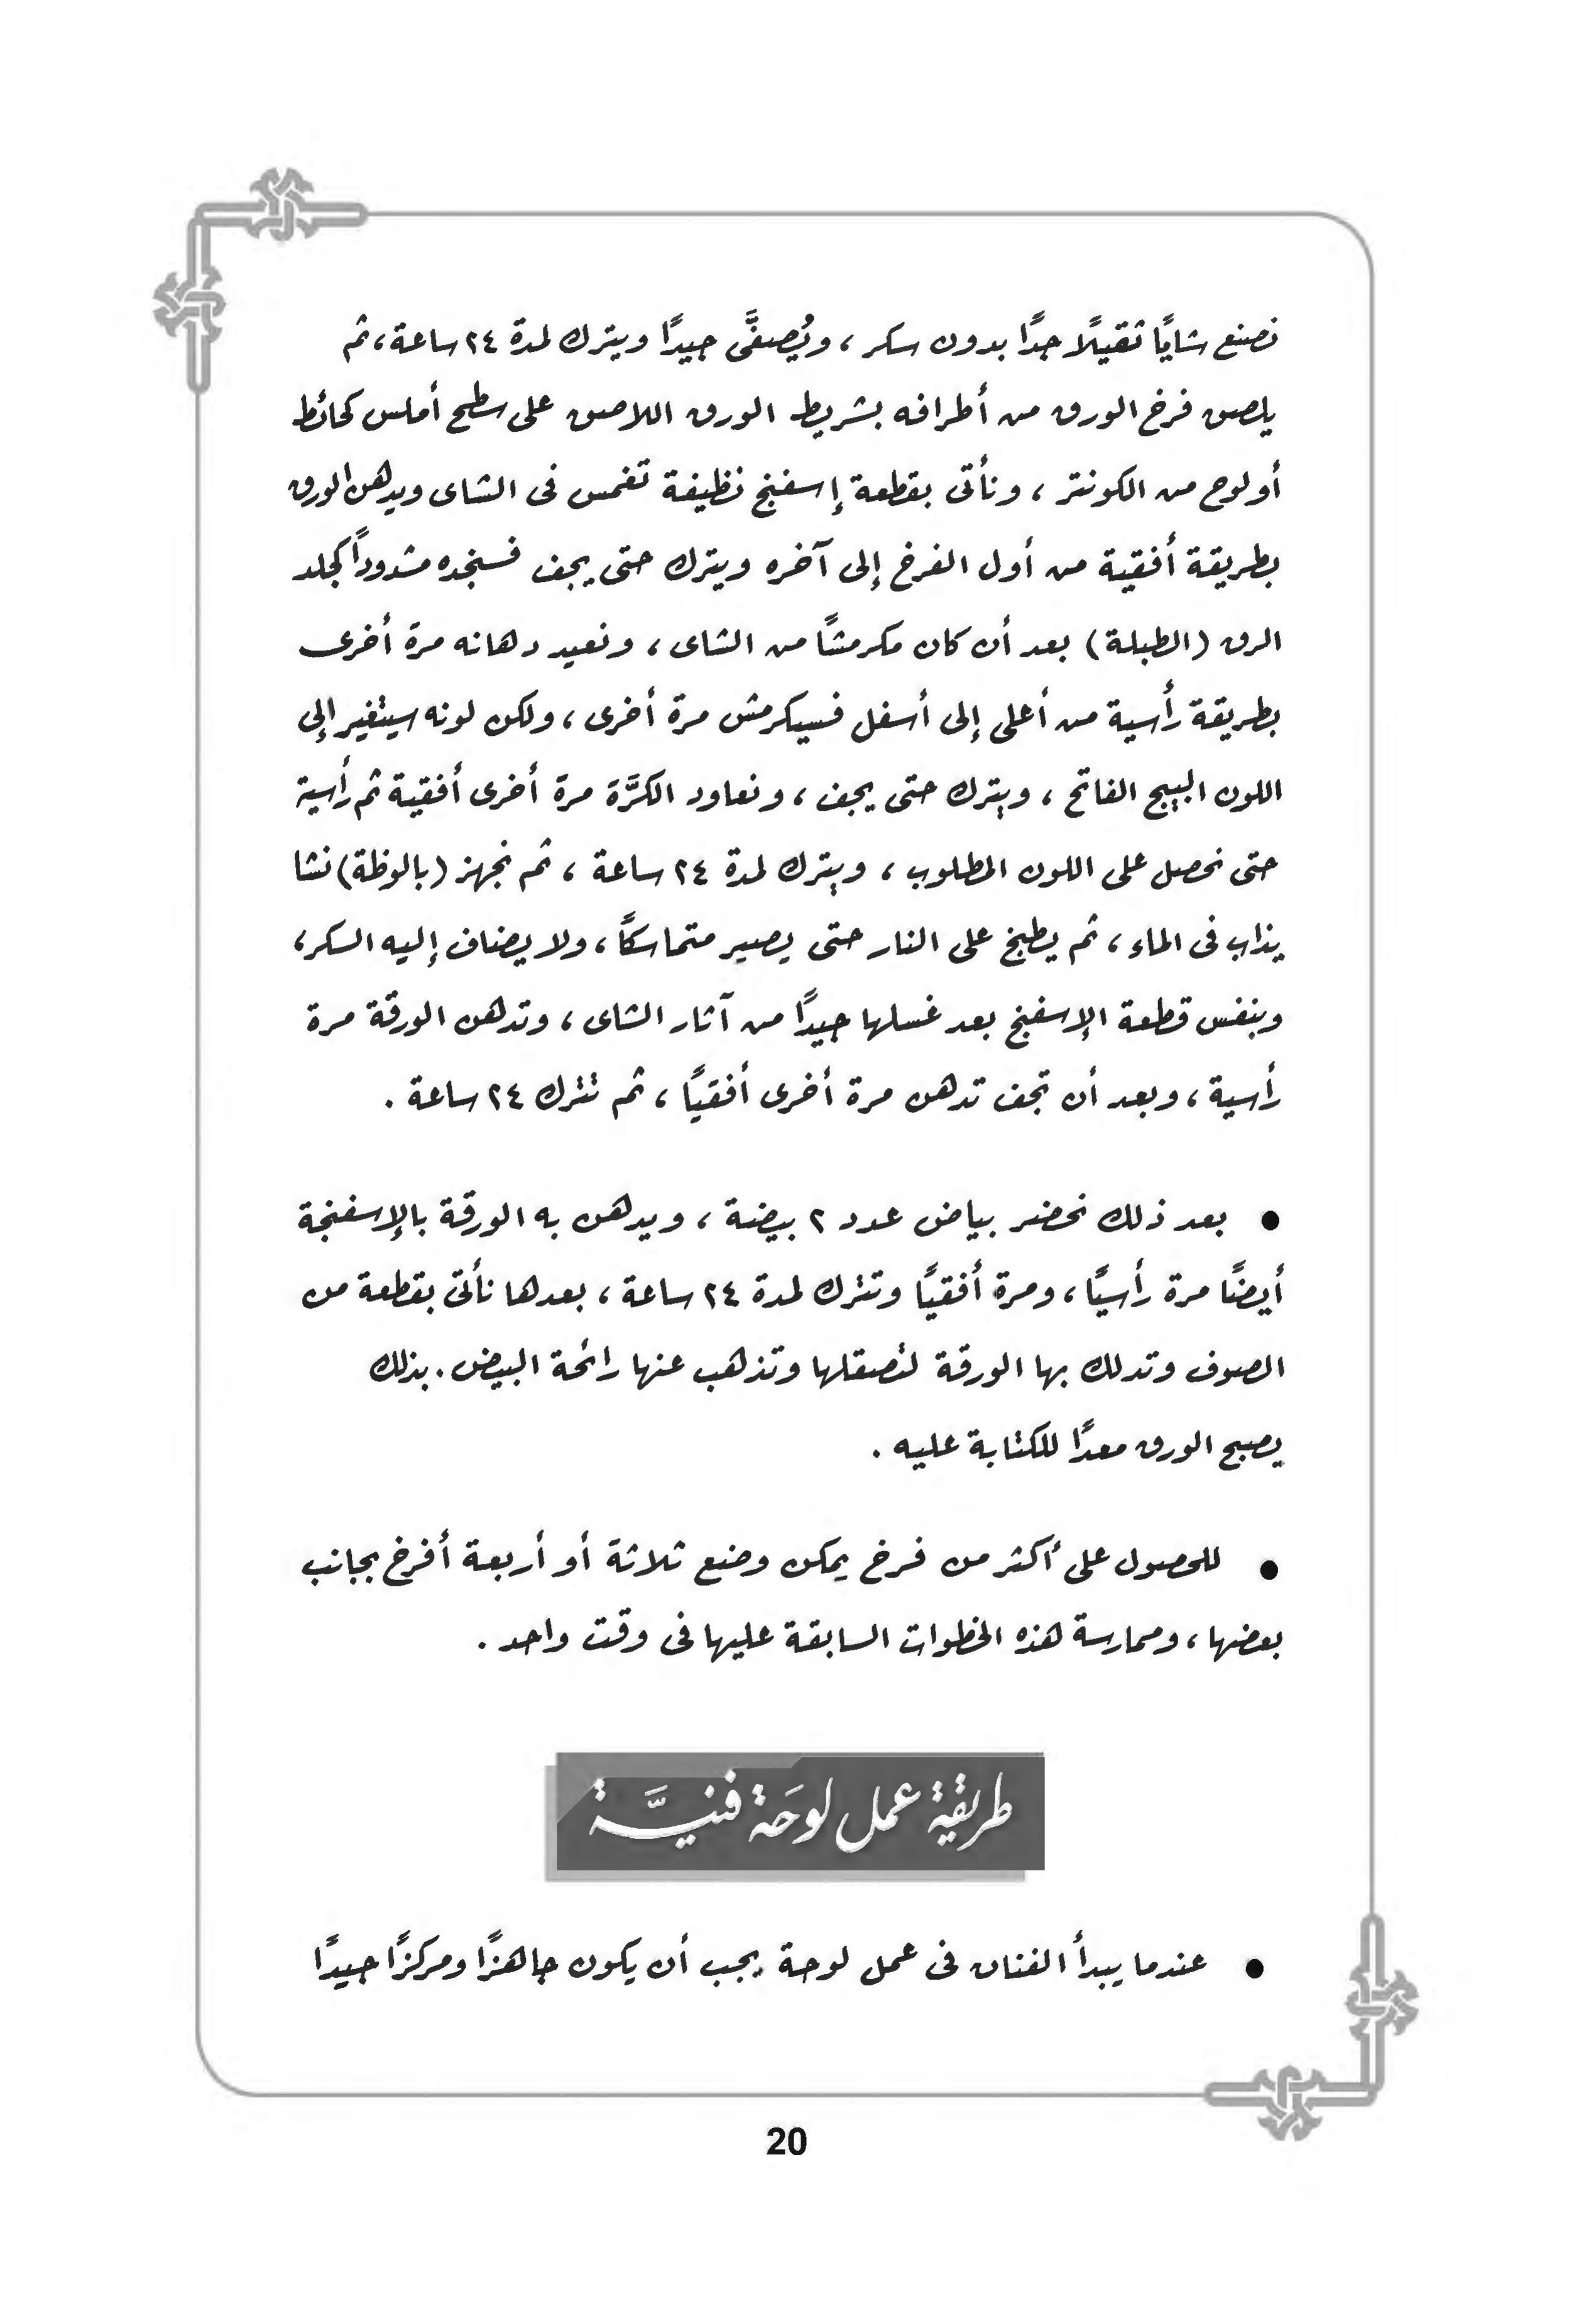 نصنع شايًا ثقيلًا جدًا بدون سكر ، ويُصفَّى جيدًا ويترك لمدة ٢٤ ساعة ، ثم
يلصق فرخ الورق من أطرافه بشريط الورق اللاصق على سطح أملس كحائط
أو لوح من الكونتر ، ونأتى بقطعة إسفنج نظيفة تغمس فى الشاى ويدهن الورق
بطريقة أفقية من أول الفرخ إلى آخره ويترك حتى يجف فستجده مشدودًا كجلد
الرق (الطبلة) بعد أن كان مكرمشًا من الشاى ، ونعيد دهانه مرة أخرى
بطريقة رأسية من أعلى إلى أسفل فسيكرمش مرة أخرى ، ولكن لونه سيتغير إلى
اللون البيج الفاتح ، ويترك حتى يجف ، ونعاود الكرَّة مرة أخرى أفقية ثم رأسية
حتى نحصل على اللون المطلوب ، ويترك لمدة ٢٤ ساعة ، ثم نجهز (بالوظة) نشا
يذاب فى الماء ، ثم يطبخ على النار حتى يصير متماسكًا ، ولا يضاف إليه السكر ،
وبنفس قطعة الإسفنج بعد غسلها جيدًا من آثار الشاى ، وتدهن الورقة مرة
رأسية ، وبعد أن تجف تدهن مرة أخرى أفقيًا ، ثم تترك ٢٤ ساعة .
● بعد ذلك نحضر بياض عدد ٢ بيضة ، ويدهن به الورقة بالإسفنجة
أيضًا مرة رأسيًا ، ومرة أفقيًا وتترك لمدة ٢٤ ساعة ، بعدها نأتى بقطعة من
الصوف وتدلك بها الورقة لتصقلها وتذهب عنها رائحة البيض . بذلك
يصبح الورق معدًا للكتابة عليه .
● للحصول على أكثر من فرخ يمكن وضع ثلاثة أو أربعة أفرخ بجانب
بعضها ، وممارسة هذه الخطوات السابقة عليها فى وقت واحد .
طريقة عمل لوحَة فنيَّة
● عندما يبدأ الفنان فى عمل لوحة يجب أن يكون جاهزًا ومركزًا جيدًا
20